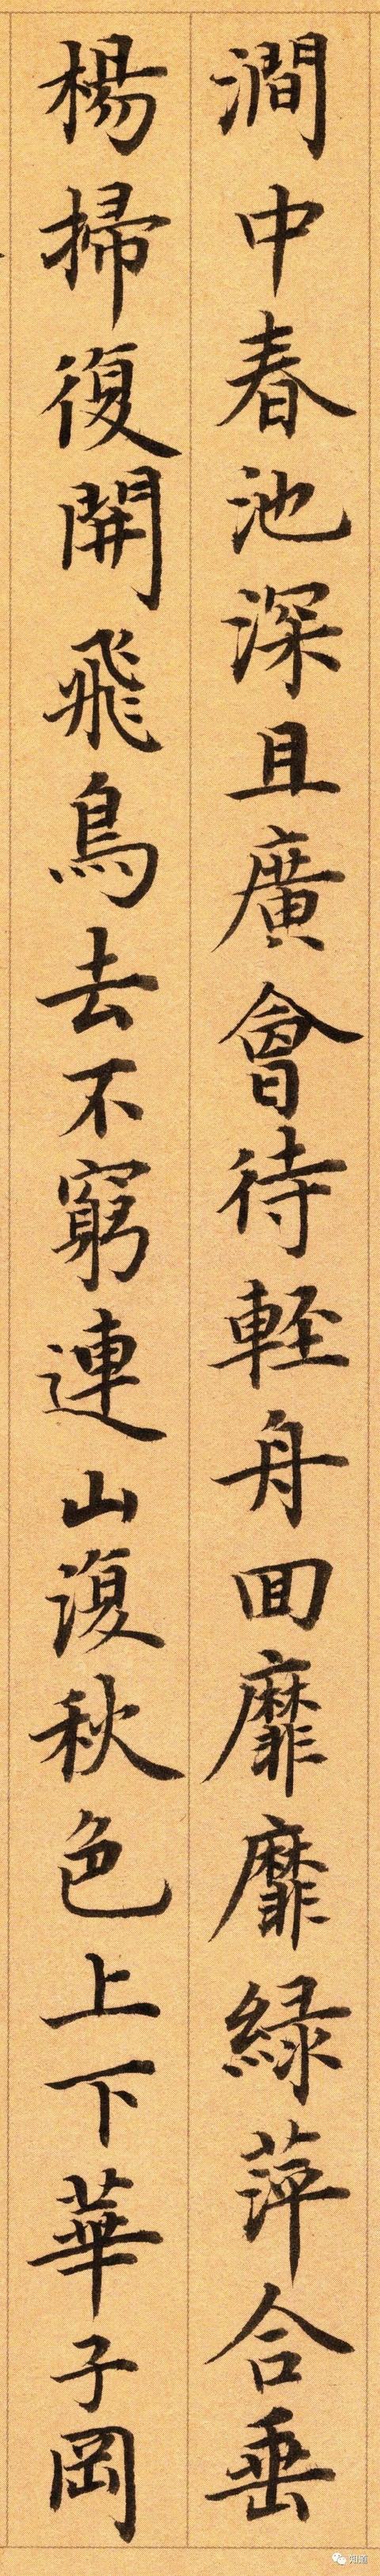 澗中春池深且廣會待軽舟囬靡靡緑萍合垂
楊掃復開飛鳥去不窮連山復秋色上下華子岡